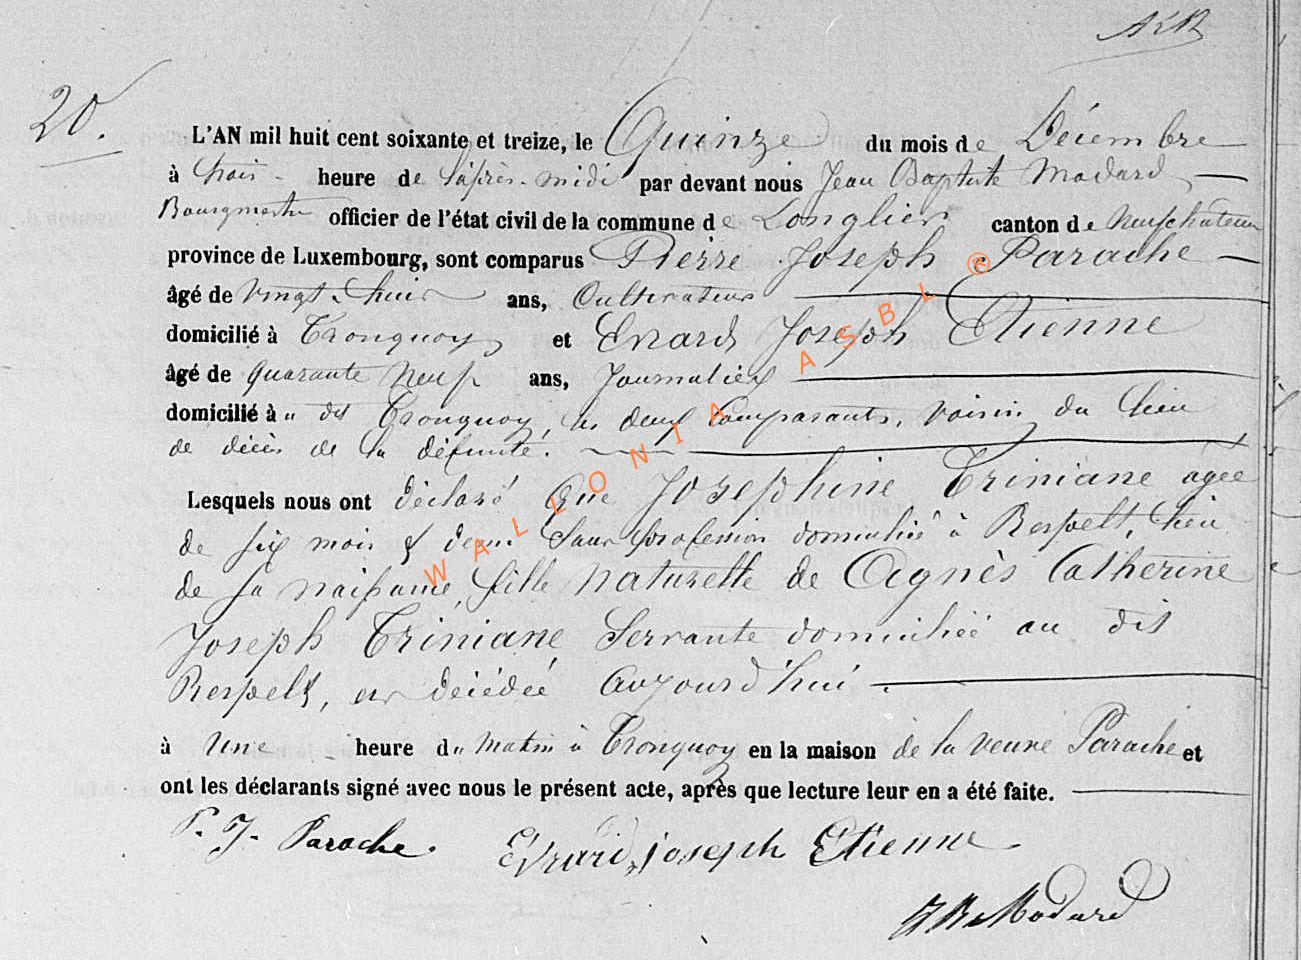 20.
L'AN mil huit cent soixante et treize, le Quinze du mois de Décembre
à trois heure de l'après-midi par devant nous Jean Baptiste Modard
Bourgmestre officier de l'état civil de la commune de Longlier canton de Neufchateau
province de Luxembourg, sont comparus Pierre Joseph Parache
âgé de vingt-huit ans, Cultivateur
domicilié à Tronquoy et Evrard Joseph Etienne
âgé de quarante neuf ans, Journalier
domicilié à u dit Tronquoy, les deux Comparants, voisin du lieu
de décès de la défunte.
Lesquels nous ont déclaré que Josephine Triniane agée
de six mois & demi Sans profession domiciliée à Respelt, lieu
de sa naissance, fille naturelle de Agnès Catherine
Joseph Triniane Servante domiciliée au dit
Respelt, est décédée aujourd'hui
à une heure du matin à Tronquoy en la maison de la veuve Parache et
ont les déclarants signé avec nous le présent acte, après que lecture leur en a été faite.
P. J. Parache. Evrard, joseph Etienne
JB Modard
WALLONIA ASBL ®